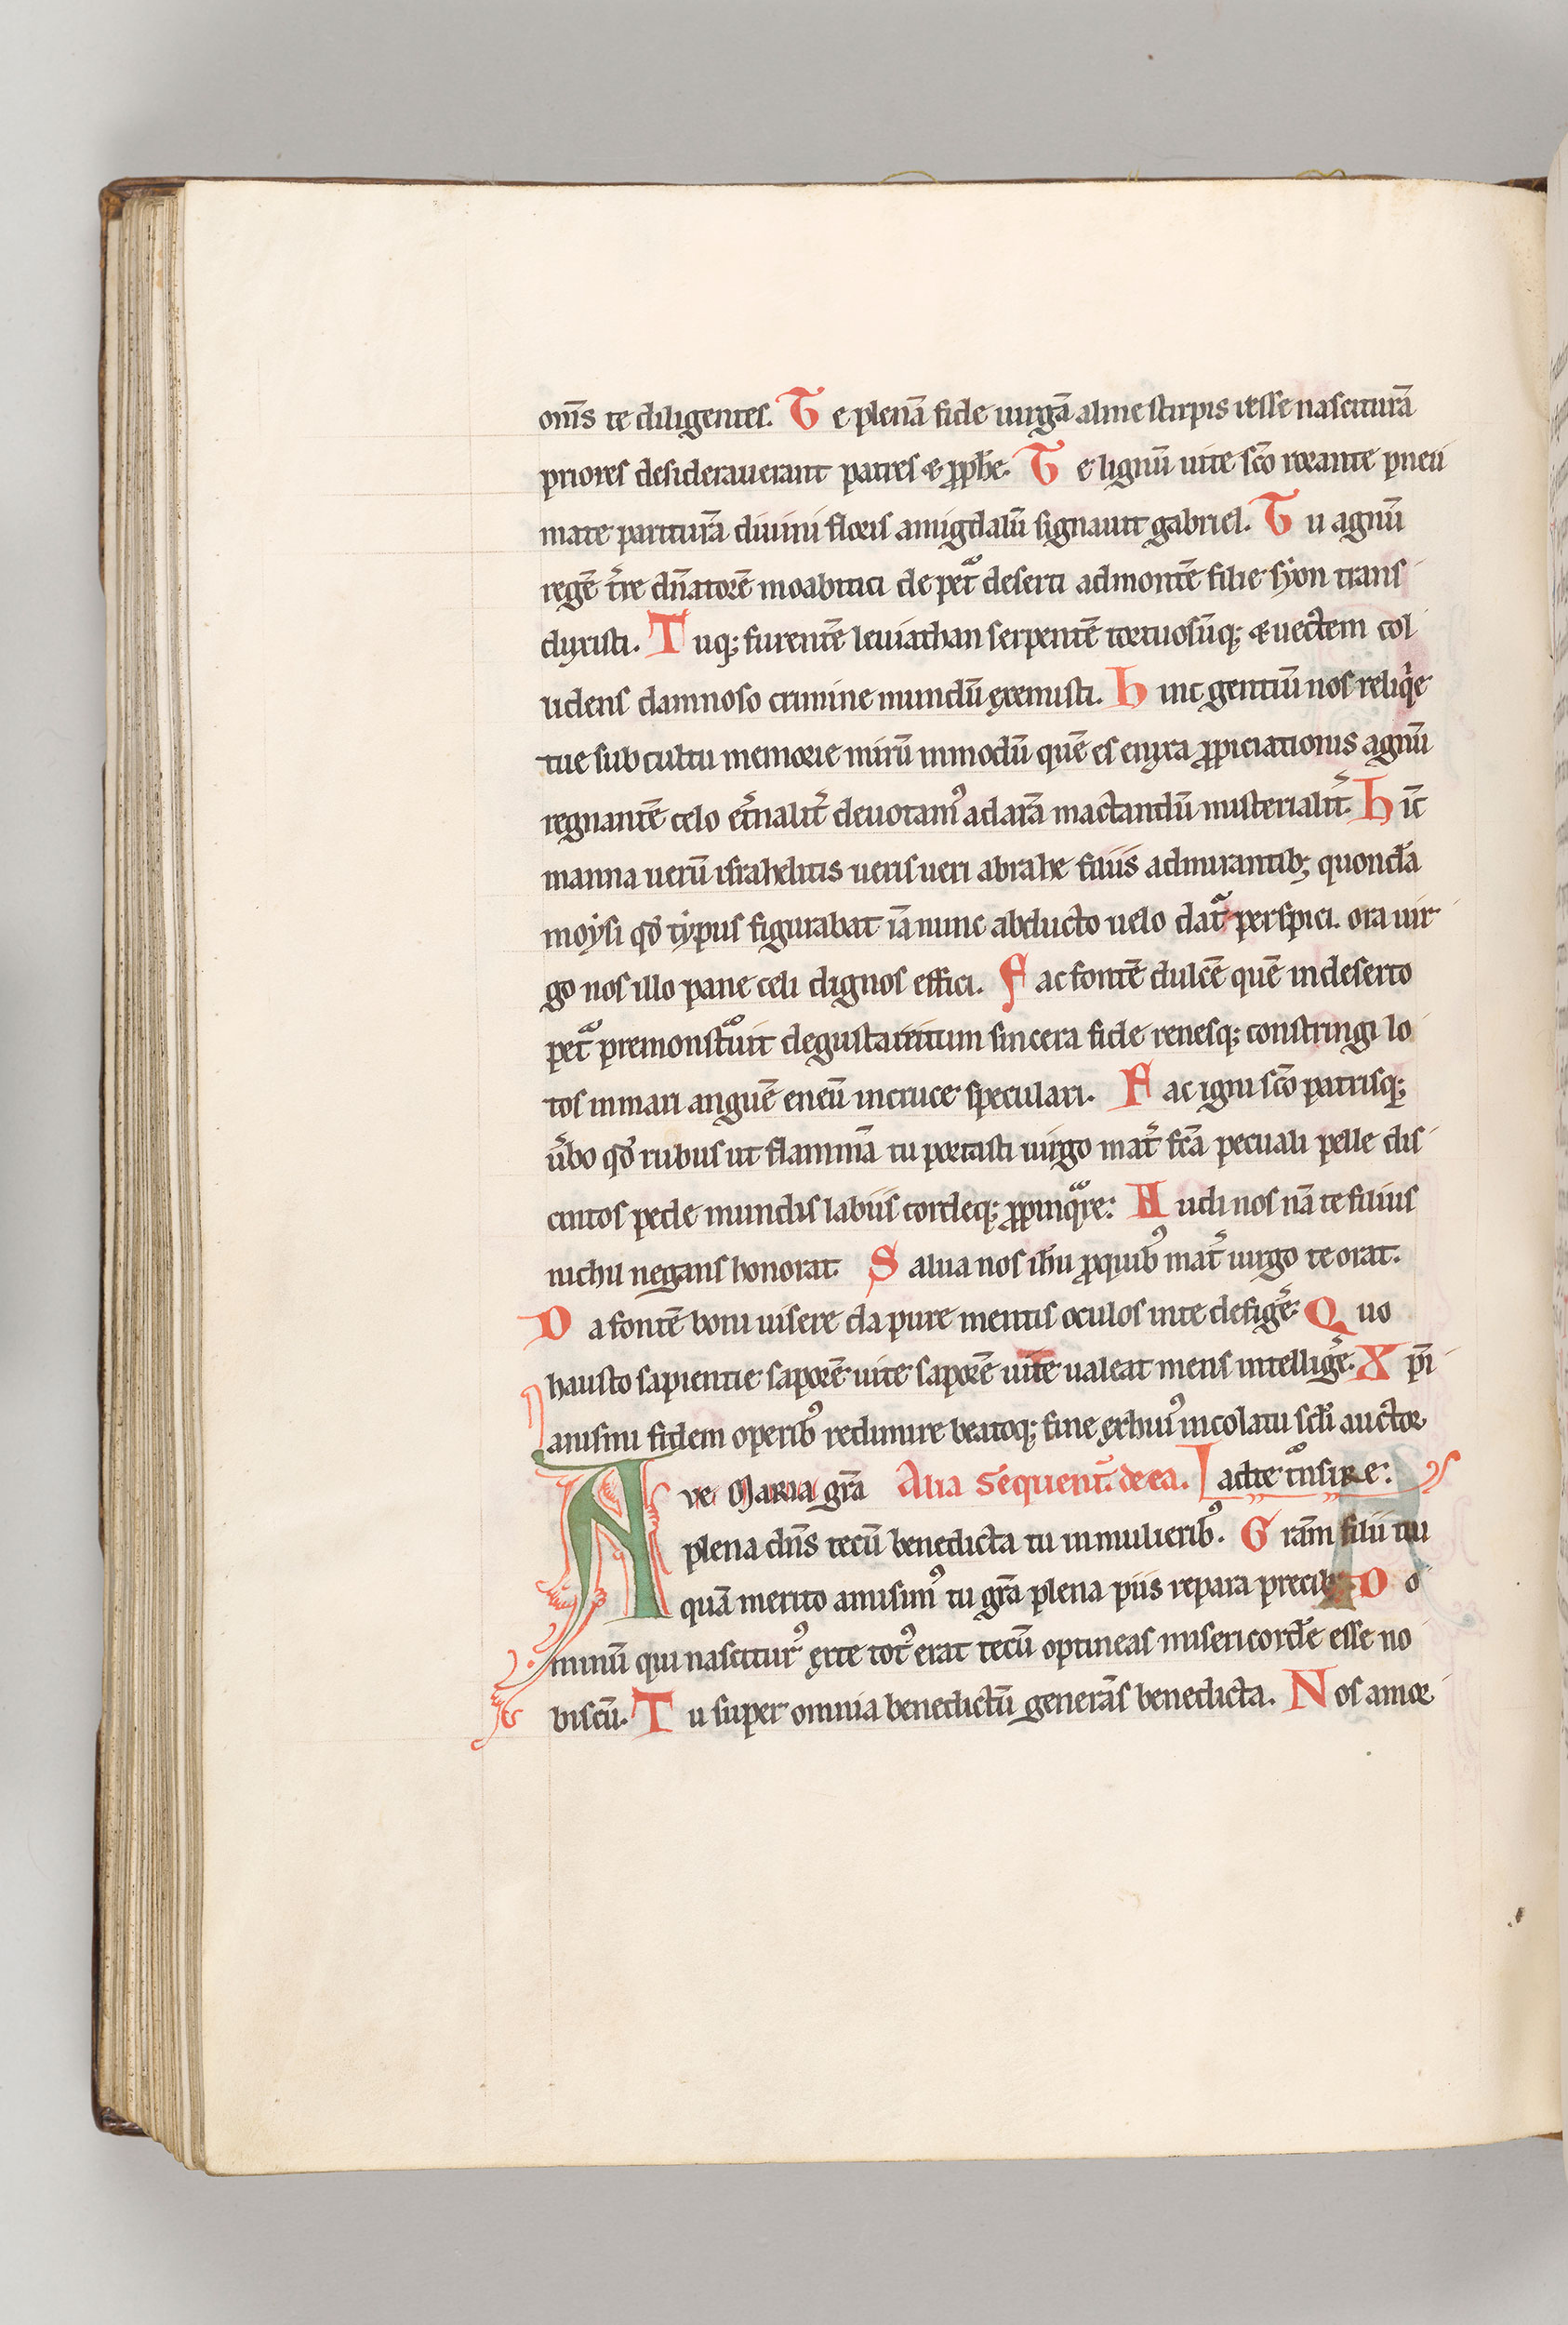 om̄s te diligentes. T e plenā fide uirgā alme stirpis iesse nasciturā
priores desiderauerant patres & ꝓph̄e. T e lignū uite sc̄o rorante pneu
mate parituram̄ diuini floris amigdalū signauit gabriel. T u agnū
regē t̄re dn̄atorē moabitici de pet̾ deserti admontē filie syon trans
duxisti. T uq; furentē leuiathan serpentē tortuosūq; & uectem col
lidens damnoso crimine mundū exemisti. H inc gentiū nos reliq̄e
tue sub cultu memorie mirū inmodū quē es enixa ꝓpiciationis agnū
regnantē celo et̾nalit̾ deuotamꝰ adarā mactandū misterialit̾. H īc
manna uerū israhelitis ueris ueri abrahe filiis admirantib; quondā
moysi qd̄ typus figurabat iā nunc abducto uelo dat̾ perspici. ora uir
go nos illo pane celi dignos effici. F ac fontē dulcē quē indeserto
pet̾ premonst̾uit degustare cum sincera fide renesq; constringi lo
tos inmari anguē eneū incruce speculari. F ac igni sc̄o patrisq;
u̾bo qd̄ rubus ut flammā tu portasti uirgo mat̾ fc̄ā pecuali pelle dis
cintos pede mundis labiis cordeq; ꝓpinq̾re: A udi nos nā te filius
nichil negans honorat. S alua nos ih̄u ꝓquibꝰ mat̾ uirgo te orat.
D a fontē boni uisere da pure mentis oculos inte defige̾: Q uo
hausto sapientie saporē uite saporē uite ualeat mens intellige̾. X p̄i
anismi fidem operibꝰ redimire beatoq; fine exhuiꝰ incolatu scl̄i auctor
A ue Maria gr̄a Alia Sequent̄. de ea. ad te t̾nsire:
plena dn̄s tecū benedicta tu inmulieribꝰ. G rām filii tui
quā merito amisimꝰ tu gr̄a plena piis repara precibꝰ D o
minū qui nasciturꝰ exte totꝰ erat tecū optineas misericord̾e esse no
biscū. T u super omnia benedictū generās benedicta. N os amor